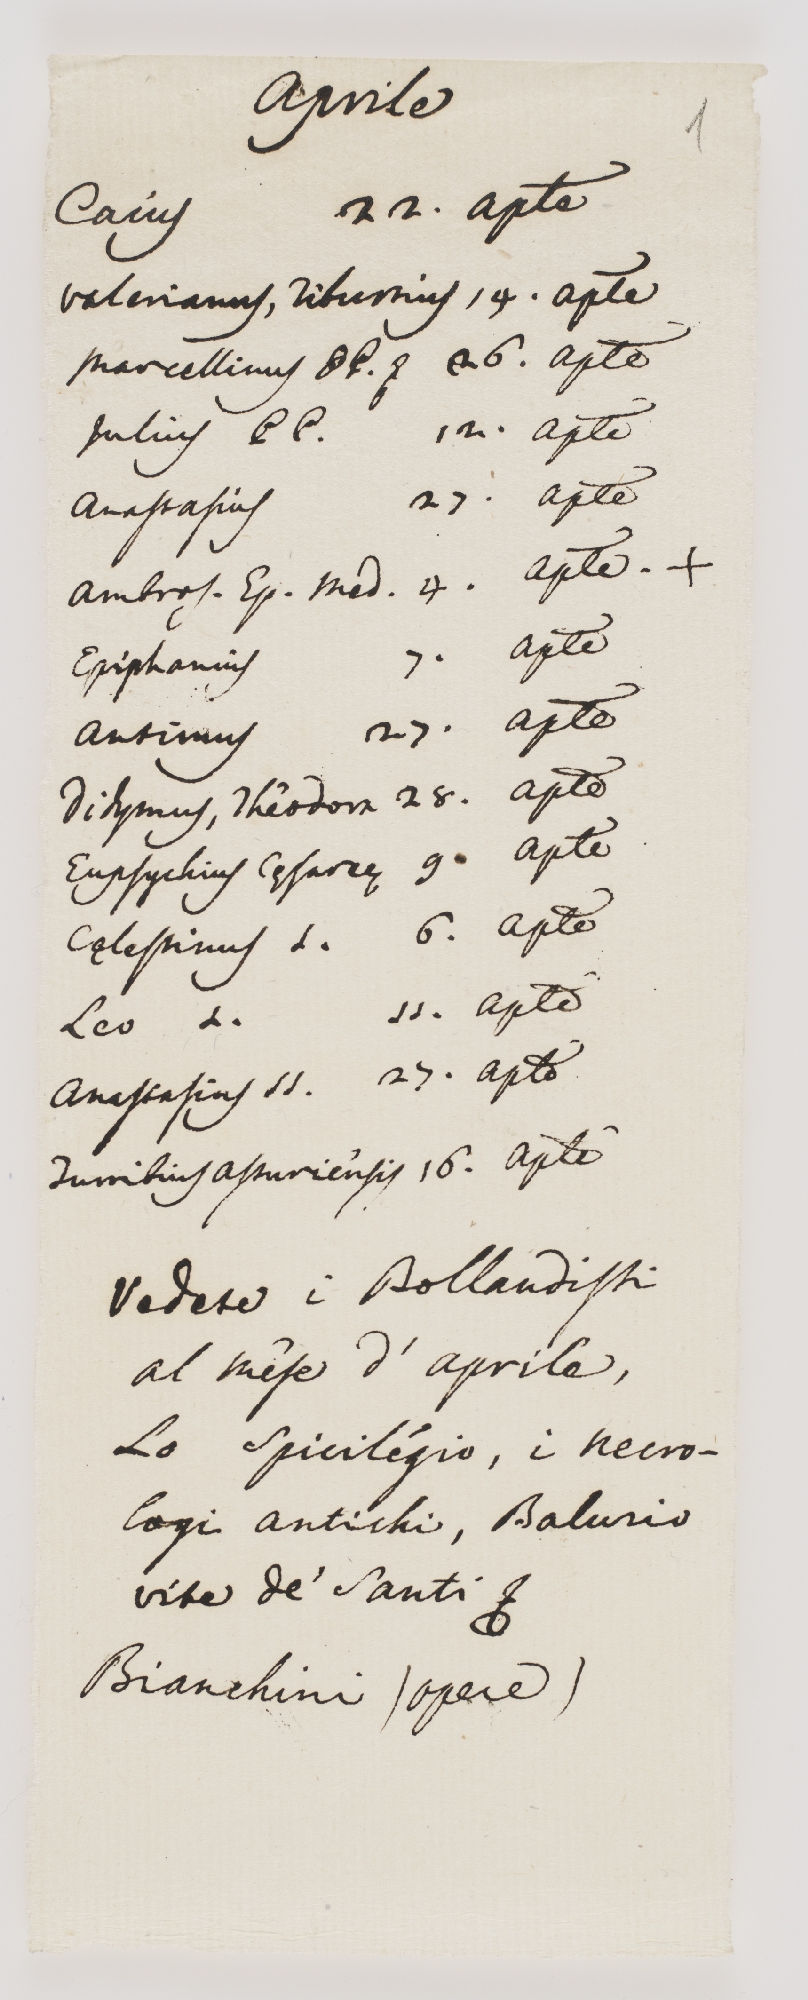 Aprile
1
Caius 22. aple
Valerianus, Tiburtius 14. aple
Marcellinus PP. 26. aple
Julius PP. 12. aple
Anastasius 27. aple
Ambros. Ep. Med. 4. aple. +
Epiphanius 7. aple
Antimus 27. aple
Didymus, Theodora 28. aple
Eupsychius Cęsareę 9. aple
Cęlestinus 1. 6. aple
Leo 1. 11. aple
Anastasius 11. 27. aple
Turribius Asturiensis 16. aple
Vedete i Bollandisti
al mese d' aprile,
Lo Spicilégio, i necro-
logi antichi, Balusio
vite de' Santi
Bianchini (opere)